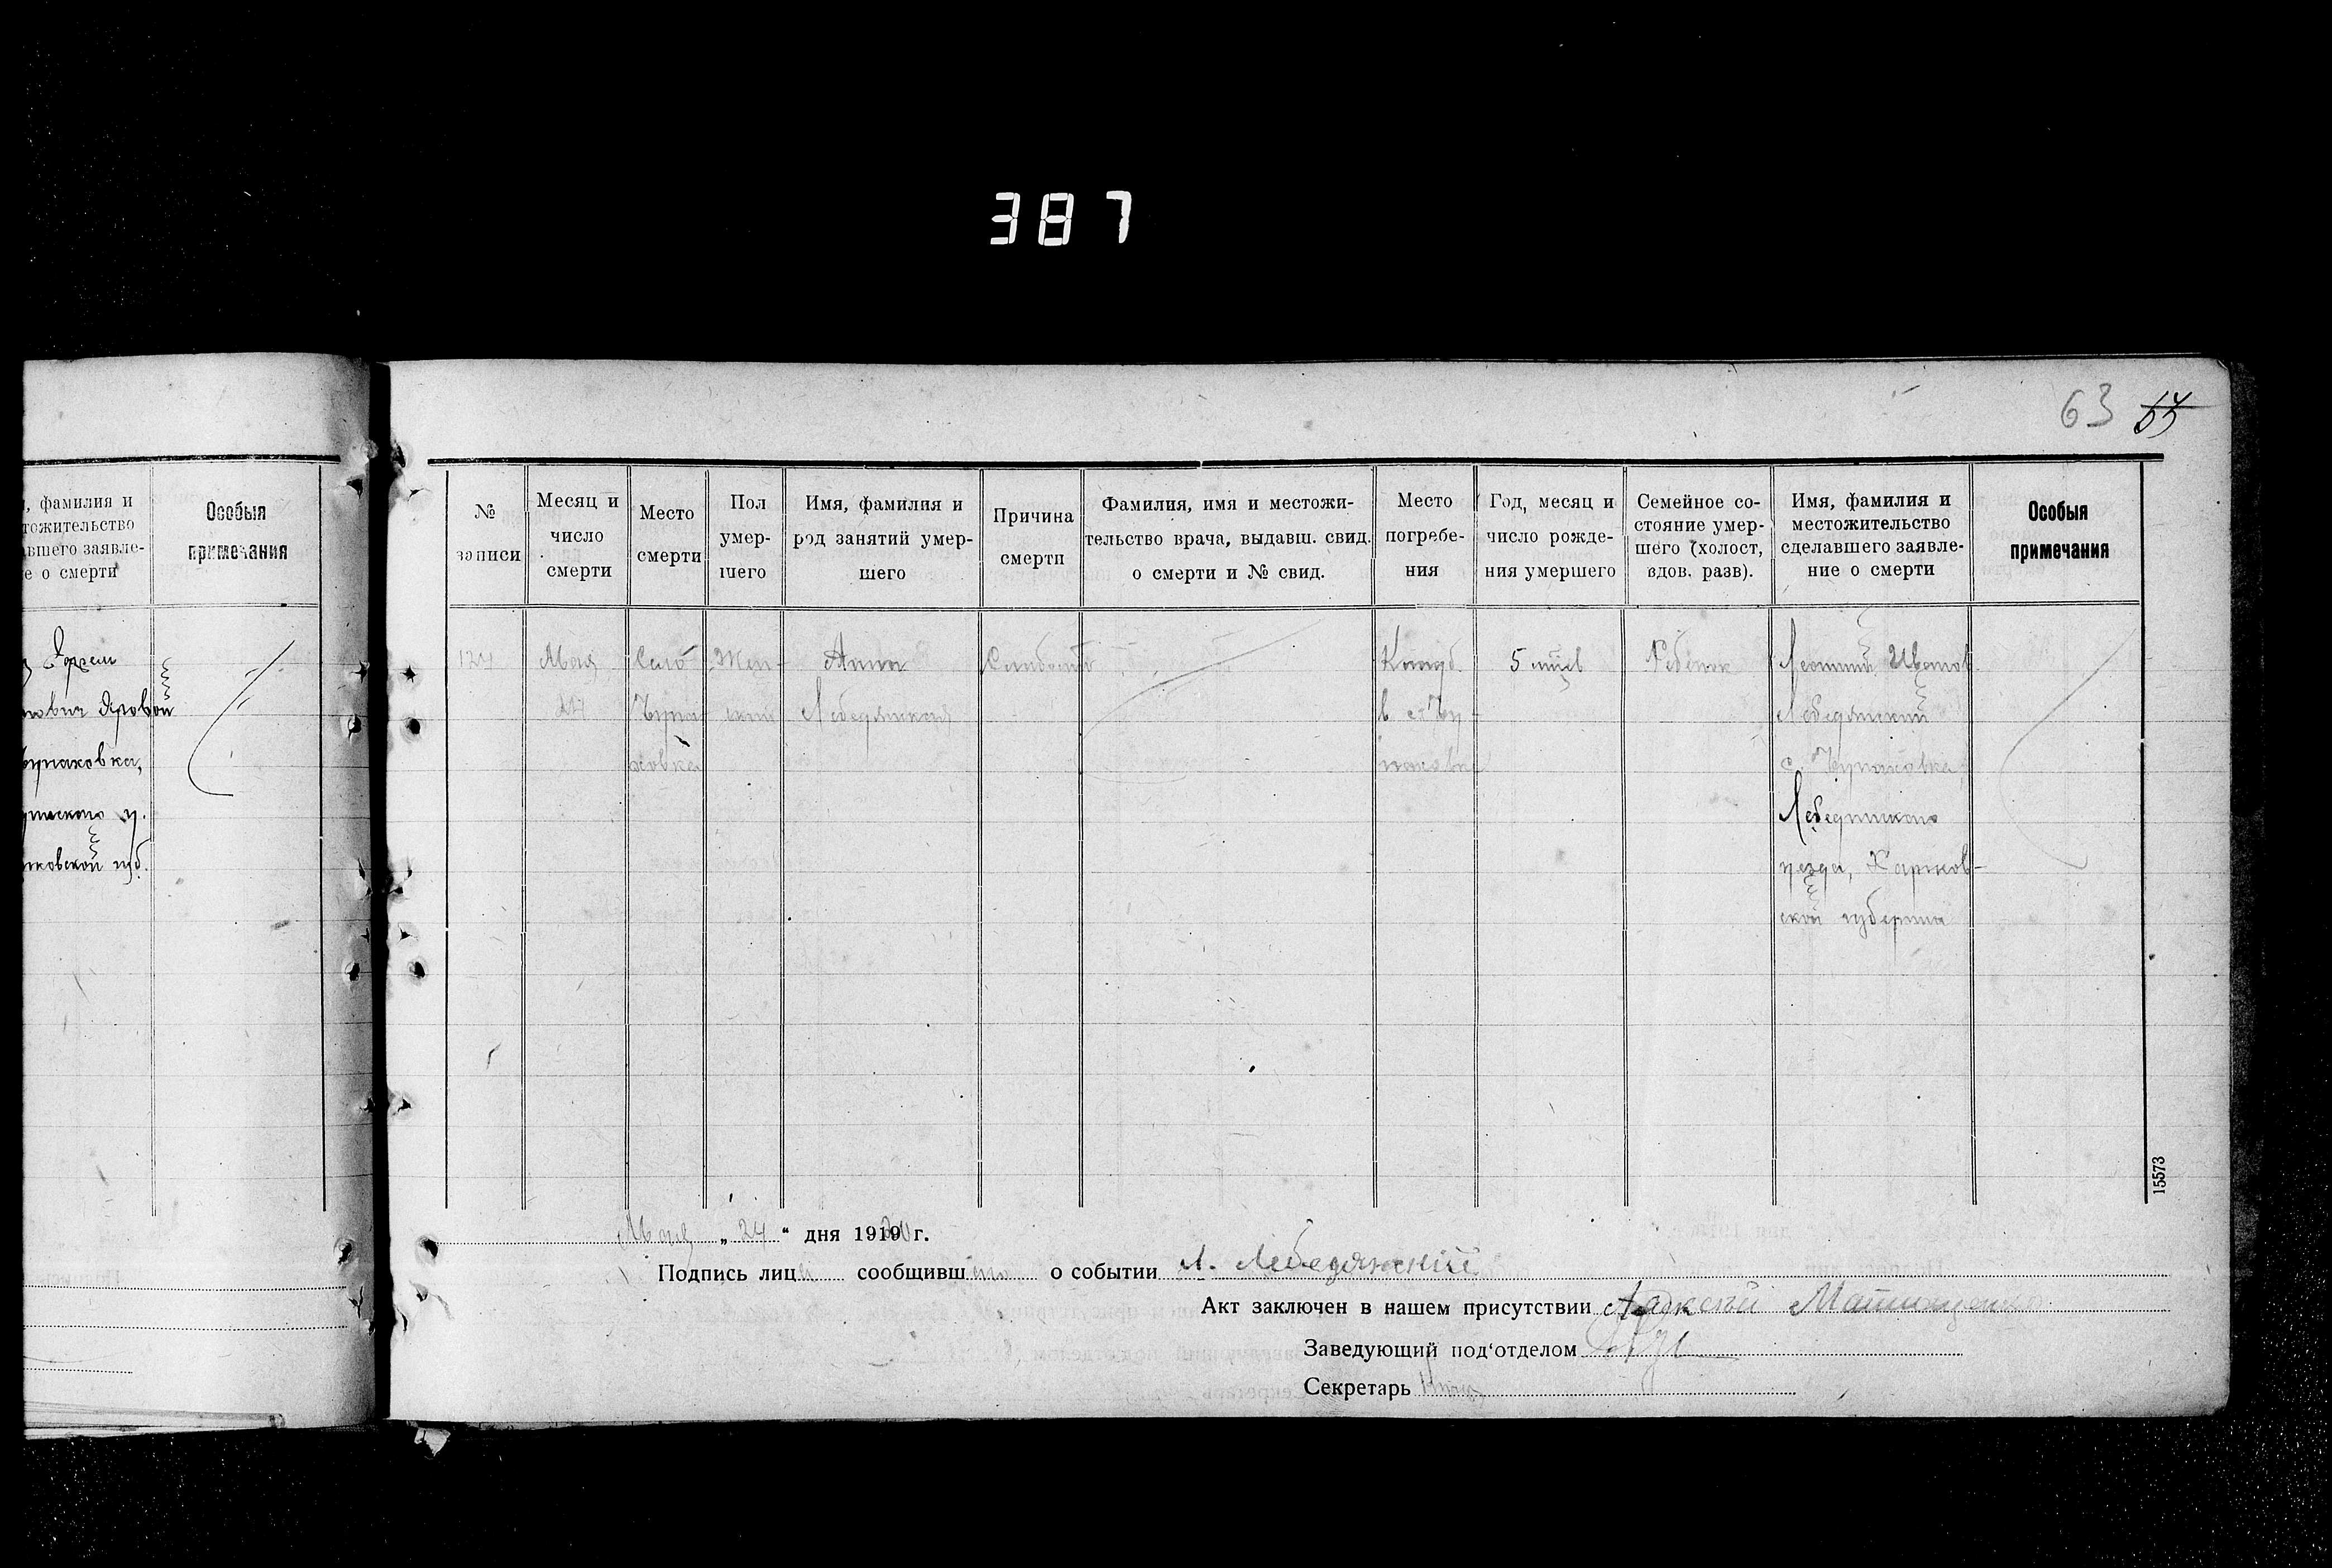 387
63
, фамилия и
тожительство
авшего заявле-
е о смерти
Особыя
примечания
Яровой
бупаковка,
у.
ковской губ.
№
записи
Месяц и
число
смерти
Место
смерти
Пол
умер-
шего
Имя, фамилия и
род занятий умер-
шего
Причина
смерти
Фамилия, имя и местожи-
тельство врача, выдавш. свид.
о смерти и № свид.
Место
погребе-
ния
Год, месяц и
число рожде-
ния умершего
Семейное со-
стояние умер-
шего (холост,
вдов. разв).
Имя, фамилия и
местожительство
сделавшего заявле-
ние о смерти
Особыя
примечания
Мая
Село
ховка
Жен-
ский
Анна
Лебедянская
Слабость
Кладб.
в с.
5 мцев
Ребенок
Леонтий
Лебедянский
с.
Лебединского
уезда, Харьков-
ской губернии
15573
Мая „ 24 “ дня 1919 20 г.
Подпись лиц сообщивш о событии Л. Лебедянский
Акт заключен в нашем присутствии
Заведующий под‘отделом
Секретарь